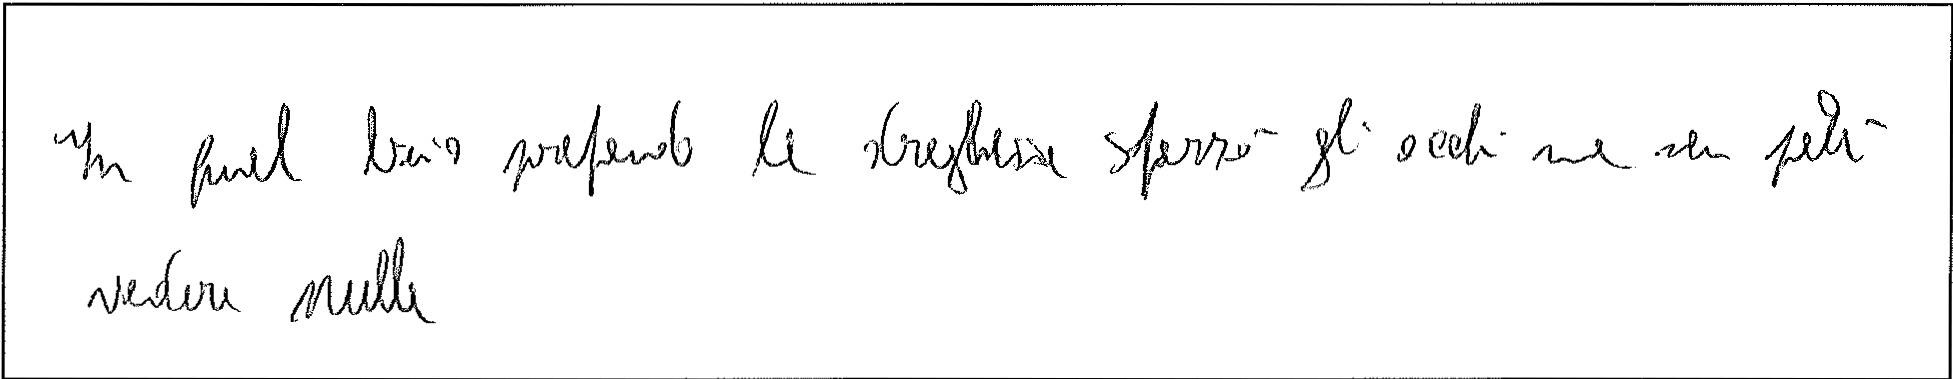 In quel buio profondo la streghessa sferzò gli occhi ma non poté
vedere nulla